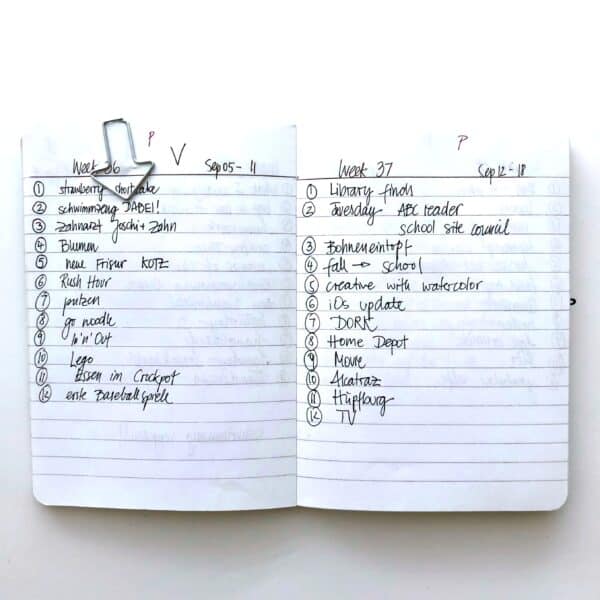 P
V
Week 36 Sep 05 - 11
① strawberry shortcake
② schwimmzeug JADEI!
③ Zahnarzt Joschi + Zahn
④ Blumen
⑤ neue Frisur KOTZ
⑥ Rush Hour
⑦ putzen
⑧ go noodle
⑨ In'n'Out
⑩ Lego
⑪ Essen im Crockpot
⑫ erste Baseballspiele
P
Week 37 Sep 12 - 18
① Library finds
② Tuesday ABC reader
school site council
③ Bohneneintopf
④ fall → school
⑤ creative with watercolor
⑥ iOs update
⑦ DORK
⑧ Home Depot
⑨ Movie
⑩ Alcatraz
⑪ Hüpfburg
⑫ TV